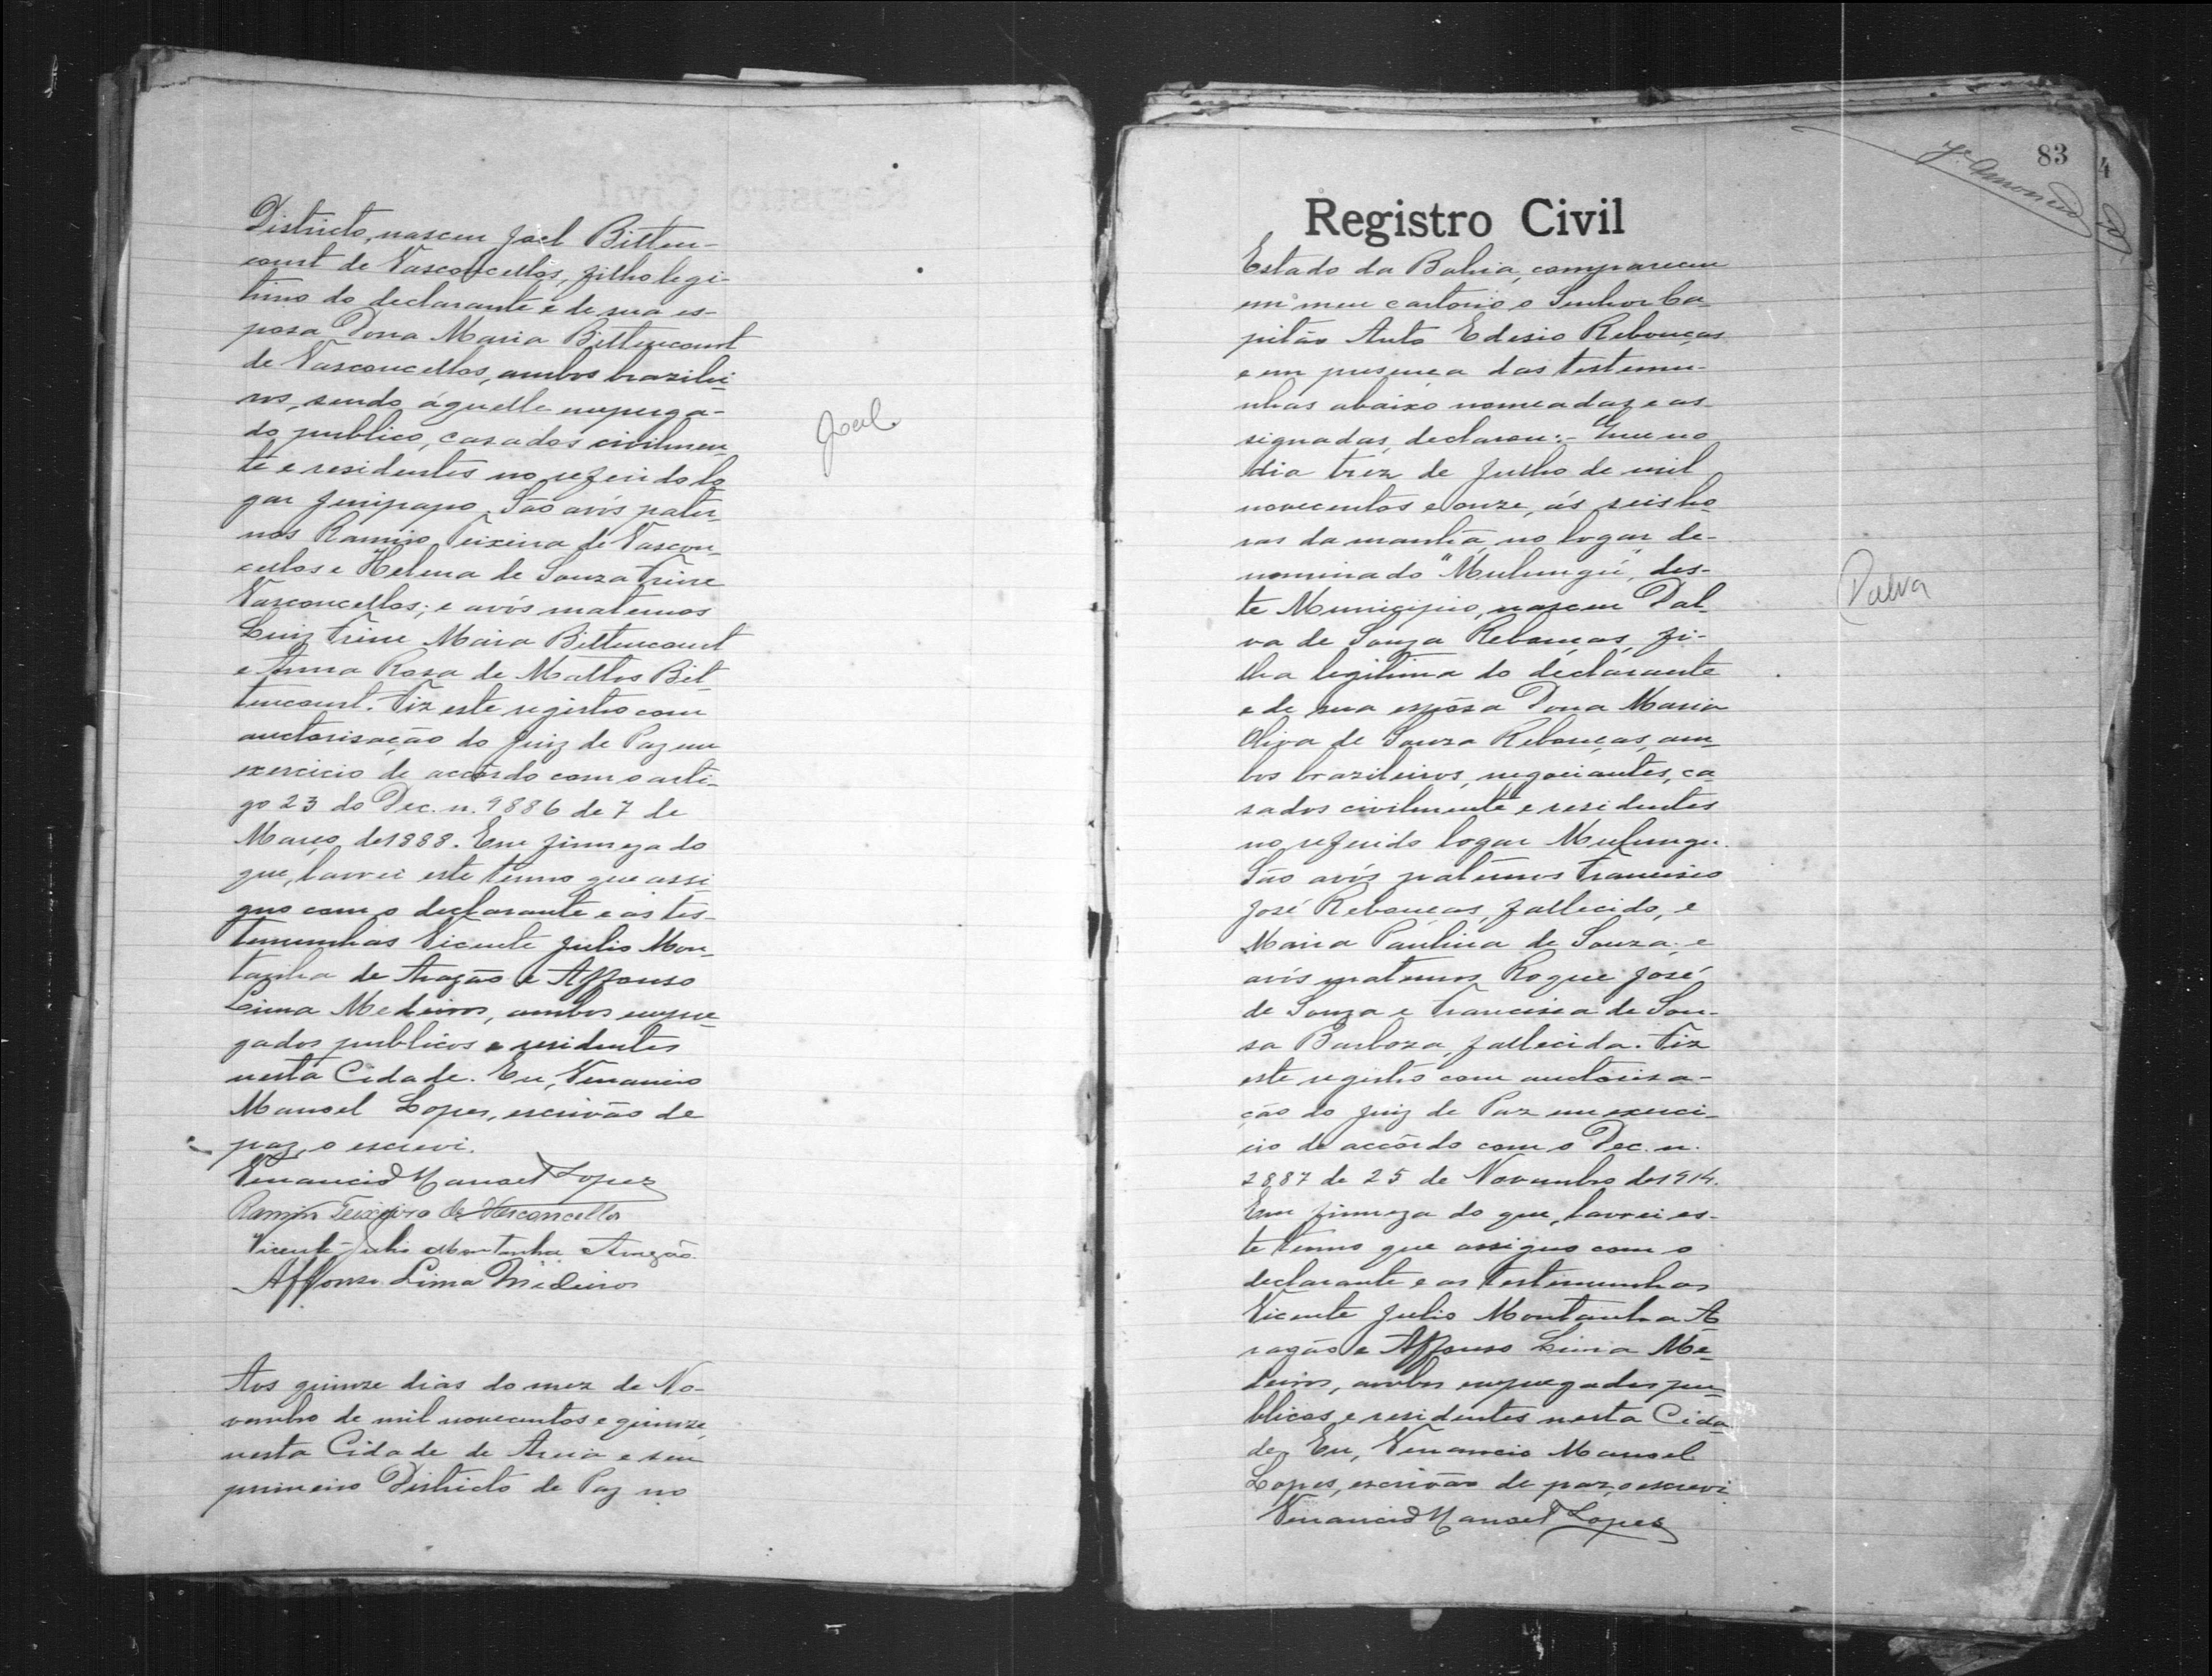 Districto, nasceu Joel Bitten-
court de Vasconcellos, filho legi-
timo do declarante e de sua es-
posa Dona Maria Bittencourt
de Vasconcellos, ambos brazilei-
ros, sendo áquelle emprega-
do publico, casados civilmen-
te e residentes no referido lo-
gar Jenipapo. São avós pater-
nos Ramiro Teixeira de Vascon-
cellos e Helena de Souza Freire
Vasconcellos; e avós maternos
Luiz Freire Maia Bittencourt
e Anna Rosa de Mattos Bit-
tencourt. Fiz este registro com
auctorisação do Juiz de Paz em
exercicio de accôrdo com o arti-
go 23 do Dec. n. 9886 de 7 de
Março de 1888. Em firmeza do
que, lavrei este termo que assi-
gno com o declarante e as tes-
temunhas Vicente Julio Mon-
tanha de Aragão e Affonso
Lima Medeiros, ambos empre-
gados publicos e residentes
nesta Cidade. Eu, Venancio
Manoel Lopes, escrivão de
paz, o escrevi.
Venancio Manoel Lopes
Ramiro Teixeira de Vasconcellos
Vicente Julio Montanha Aragão
Affonso Lima Medeiros
Joel
Aos quinze dias do mez de No-
vembro de mil novecentos e quinze,
nesta Cidade de Areia e seu
primeiro Districto de Paz no
83
4
Registro Civil
Estado da Bahia, compareceu
em meu cartorio o Senhor Ca-
pitão Anto Edesio Rebouças
e em presença das testemu-
nhas abaixo nomeadas e as-
signadas, declarou:- Que no
dia trez de Julho de mil
novecentos e onze, ás seis ho-
ras da manhã, no logar de-
nominado "Mulungú", des-
te Municipio, nasceu Dal-
va de Souza Rebouças, fi-
lha legitima do declarante
e de sua espôsa Dona Maria
Oliva de Souza Rebouças, am-
bos brazileiros, negociantes, ca-
sados civilmente e residentes
no referido logar Mulungu.
São avós paternos Francisco
José Rebouças, fallecido, e
Maria Paulina de Souza; e
avós maternos Roque José
de Souza e Francisca de Sou-
sa Barboza, fallecida. Fiz
este registro com auctorisa-
ção do Juiz de Paz em exerci-
cio de accôrdo com o Dec. n.
2887 de 25 de Novembro de 1914.
Em firmeza do que, lavrei es-
te termo que assigno com o
declarante e as testemunhas
Vicente Julio Montanha A-
ragão e Affonso Lima Me-
deiros, ambos empregados pu-
blicos e residentes nesta Cida-
de. Eu, Venancio Manoel
Lopes, escrivão de paz, o escrevi
Venancio Manoel Lopes
Dalva